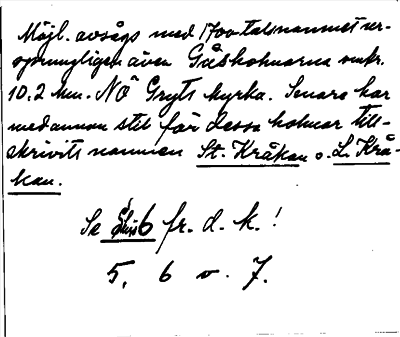 Möjl. avsågs med 1700-talsnamnet ur-
sprungligen även Gåsholmarna omkr.
10.2 km. NÖ Gryts kyrka. Senare har
med annan stil för dessa holmar till-
skrivits namnen St. Kråkan o. L. Krå-
kan.
Se 6 fr. d. k.!
5, 6 o. 7.